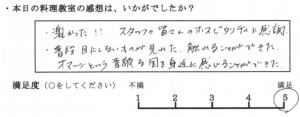 ・本日の料理教室の感想は、いかがでしたか？
・楽かった!! スタッフの皆さんのホスピタリティに感謝.
・普段目にしないものが見れた、触れることができた.
オマーンという素敵な国を身近に感じることができた.
満足度（○をしてください） 不満 満足
1 2 3 4 5